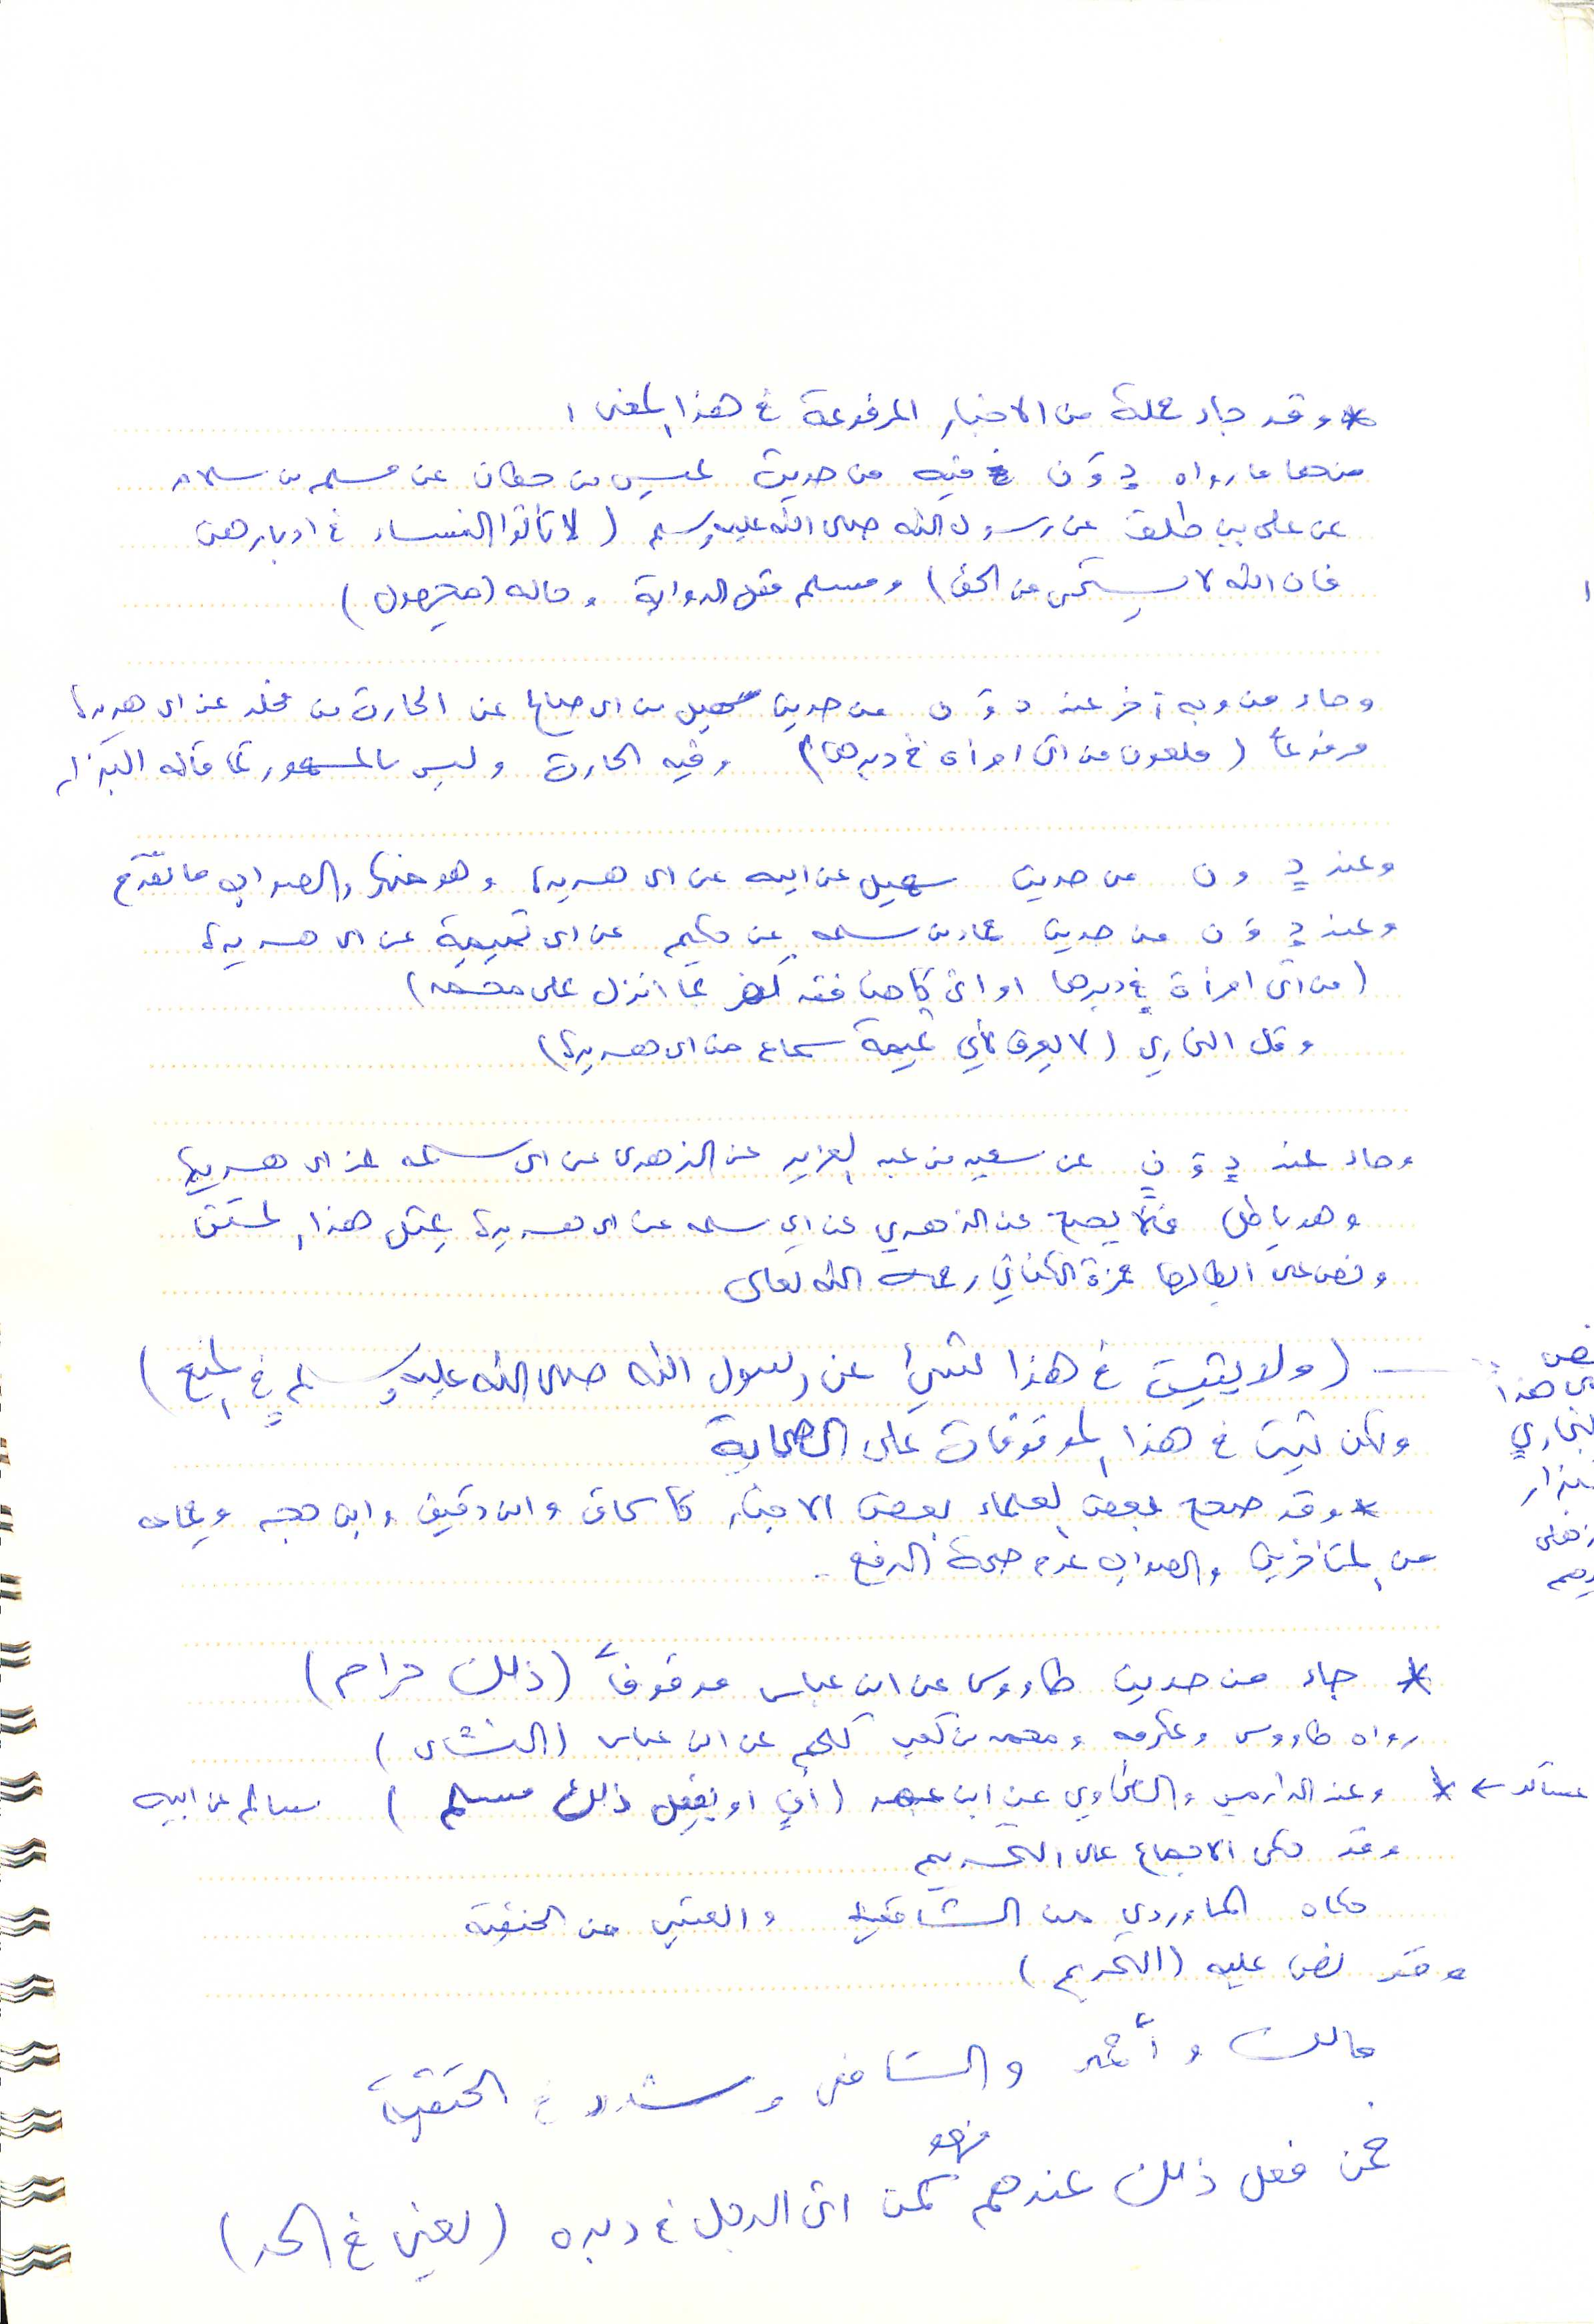 * وقد جاء جملة من الاخبار المرفوعة في هذا المعنى :
منها ما رواه د و ت و ن فيه من حديث عيسى بن حطان عن مسلم بن سلام
عن علي بن طلق عن رسول الله صلى الله عليه وسلم ( لا تأتوا النساء في ادبارهن
فان الله لا يستحي من الحق ) ومسلم مقل الرواية وحاله ( مجهول )
وجاء من وجه آخر عند د و ن من حديث سهيل بن ابي صالح عن الحارث بن مخلد عن ابي هريرة
مرفوعاً ( ملعون من اتى امرأة في دبرها ) وفيه الحارث وليس بالمشهور كما قاله البزار
وعند د و ن من حديث سهيل عن ابيه عن ابي هريرة وهو منها والصواب ما تقدم
وعند د و ت و ن من حديث حماد بن سلمه عن حكيم عن ابي تميمة عن ابي هريرة
( من اتى امرأة في دبرها او اتى كاهنا فقد كفر بما انزل على محمد )
وقال البخاري ( لا يعرف لابي تميمة سماع من ابي هريرة )
وجاء عند د و ت و ن عن سعيد بن عبد العزيز عن الزهري عن ابي سلمه عن ابي هريرة
وهو باطل فلا يصح عن الزهري عن ابي سلمه عن ابي هريرة بمثل هذا المتن
ونص على ابطالها حمزة الكناني رحمه الله تعالى
— ( ولا يثبت في هذا شيئ عن رسول الله صلى الله عليه وسلم في المنع )
ولكن ثبت في هذا الموقوفات على الصحابة
* وقد صحح بعض العلماء بعض الاخبار كاسحاق وابن دقيق وابن حجر وجماعه
من المتأخرين والصواب عدم صحة الرفع .
* جاء من حديث طاووس عن ابن عباس موقوفاً ( ذلك حرام )
رواه طاووس وعكرمه ومحمد بن كعب كلهم عن ابن عباس ( النسائي )
* وعند الدارمي والطحاوي عن ابن عمر ( أفٍ او يفعل ذلك مسلم ) سالم عن ابيه
وقد حكى الاجماع على التحريم
حكاه الماوردي من الشافعية والعيني من الحنفية
وقد نص عليه ( التحريم )
مالك و أحمد و الشافعي وشدد في الحنفية
فمن فعل ذلك عندهم فهو كمن اتى الرجل في دبره ( يعني في الحد )
نص
هذا
البخاري
البزار